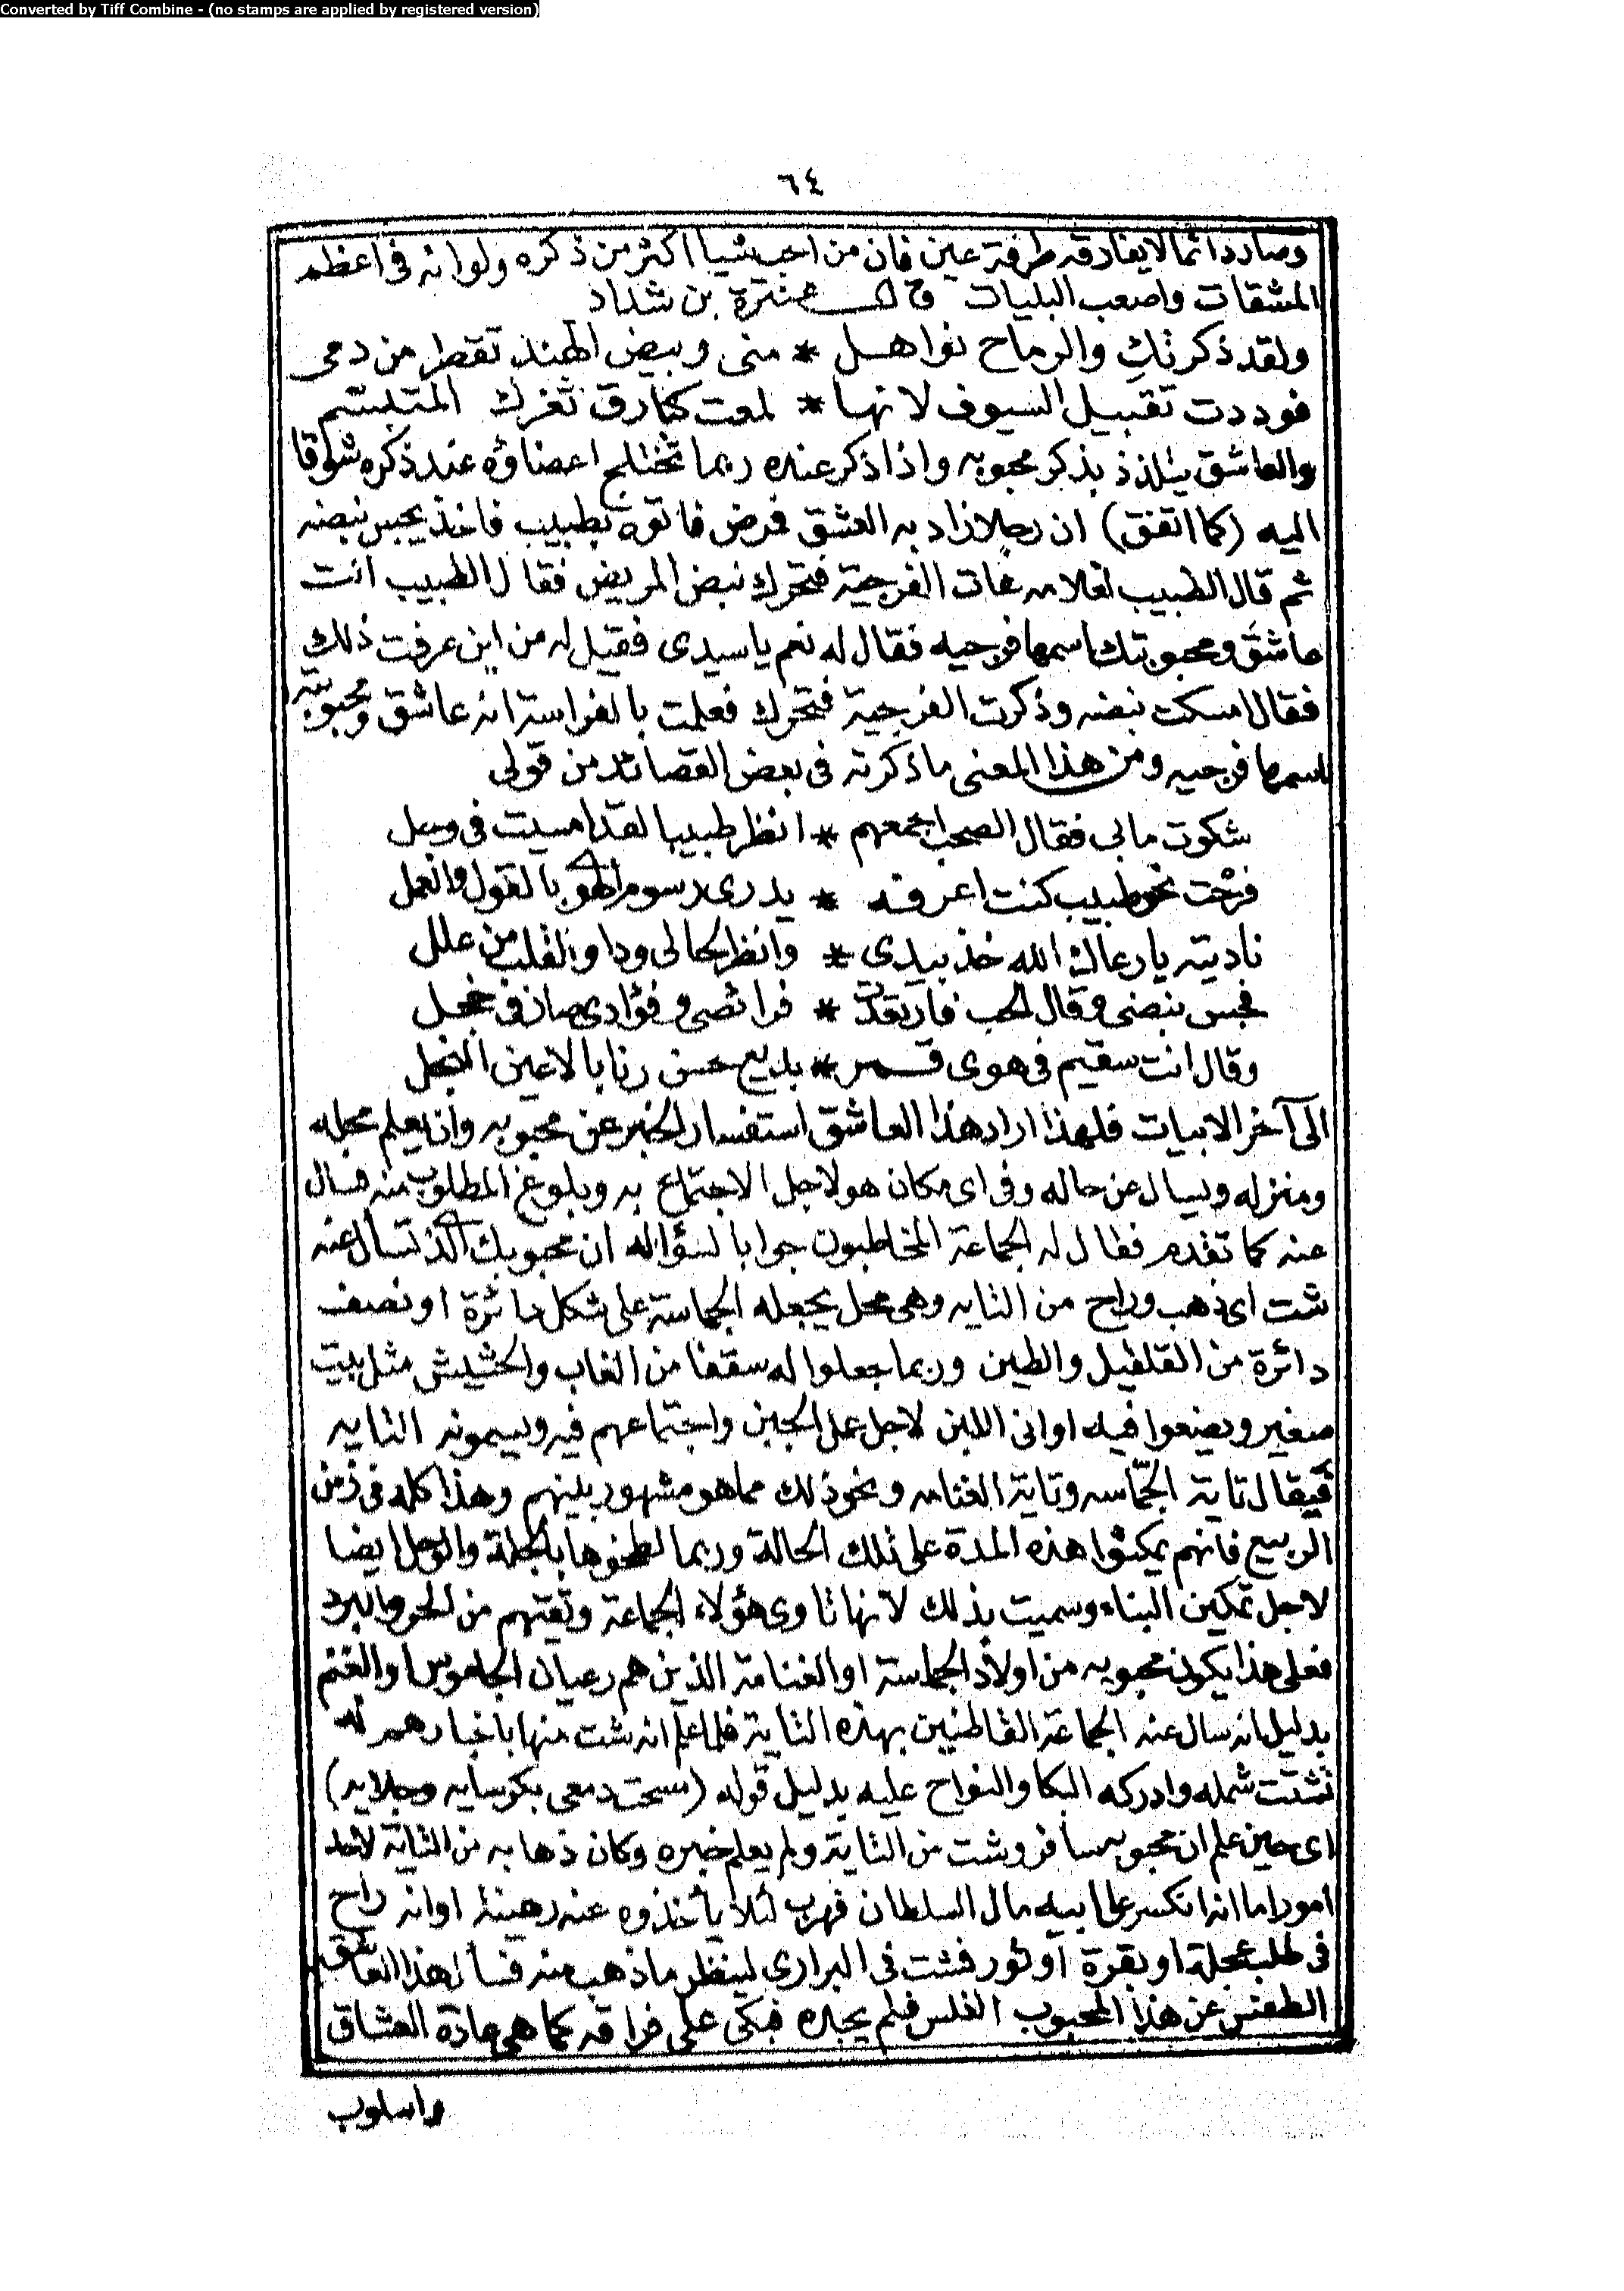 Converted by Tiff Combine - (no stamps are applied by registered version)
٦٤
وصار دائما لا يفارقه طرفة عين فان من احب شيا اكثر من ذكره ولو انه فى اعظم
المشقات واصعب البليات قال عنترة بن شداد
ولقد ذكرتك والرماح نواهل * منى وبيض الهند تقطر من دمى
فوددت تقبيل السيوف لانها * لمعت كبارق ثغرك المتبسم
والعاشق يتلذذ بذكر محبوبه واذا ذكر عنده ربما تختلج اعضاؤه عند ذكره شوقا
اليه (كما اتفق) ان رجلا زاد به العشق فمرض فاتوه بطبيب فاخذ يجس نبضه
ثم قال الطبيب لغلامه هات الفرجية فتحرك نبض المريض فقال الطبيب انت
عاشق ومحبوبتك اسمها فرجيه فقال له نعم ياسيدى فقيل له من اين عرفت ذلك
فقال امسكت نبضه وذكرت الفرجية فتحرك فعلمت بالفراسة انه عاشق ومحبوبته
اسمها فرجيه ومن هذا المعنى ما ذكرته فى بعض القصائد من قولى
شكوت مابى فقال الصحب اجمعهم * انظر طبيبا لقد امسيت فى وجل
فرحت نحو طبيب كنت اعرفه * يدرى رسوم الهوى بالقول والعمل
ناديته يا رعاك الله خذ بيدى * وانظر لحالى وداو القلب من علل
فجس نبضى وقال الحب فارتعدت * فرائصى وفؤادى صار فى خجل
وقال انت سقيم فى هوى قمر * بديع حسن رنا بالاعين النجل
الى آخر الابيات فلهذا اراد هذا العاشق استفسار الخبر عن محبوبه وان يعلم محله
ومنزله ويسال عن حاله وفى اى مكان هو لاجل الاجتماع به وبلوغ المطلوب منه فسال
عنه كما تقدم فقال له الجماعة المخاطبون جوابا لسؤاله ان محبوبك الذى تسأل عنه
شت اى ذهب وراح من التايه وهى محل يجعله الجماسة على شكل دائرة او نصف
دائرة من القلقيل والطين وربما جعلوا له سقفا من الغاب والحشيش مثل بيت
صغير ويضعوا فيه اوانى اللبن لاجل عمل الجبن واجتماعهم فيه ويسمونه التايه
فيقال تاية الجماسه وتاية الغنامه ونحو ذلك مما هو مشهور بينهم وهذا كله فى زمن
الربيع فانهم يمكثوا هذه المدة على تلك الحالة وربما لطخوها بالجلة والوحل ايضا
لاجل تمكين البناء وسميت بذلك لانها تاوى هؤلاء الجماعة وتقتهم من الحر والبرد
فعلى هذا يكون محبوبه من اولاد الجماسة او الغنامة الذين هم رعيان الجاموس او الغنم
بدليل انه سال عنه الجماعة القاطنين بهذه التاية فلما علم انه شت منها باخبارهم له
تشتت شمله وادركه البكا والنواح عليه بدليل قوله (سحت دمعى بكرسايه وجلايه)
اى حين علم ان محبوبه سافر وشت من التاية ولم يعلم خبره وكان ذهابه من التاية لاحد
امور اما انه انكسر على ابيه مال السلطان فهرب لئلا يأخذوه عنه رهينة او انه راح
فى طلب عجلة او بقرة او ثور فشت فى البرارى لينظر ما ذهب منه فسأل هذا العاشق
عن هذا المحبوب الفلس فلم يجده فبكى على فراقه كما هى عادة العشاق
واسلوب